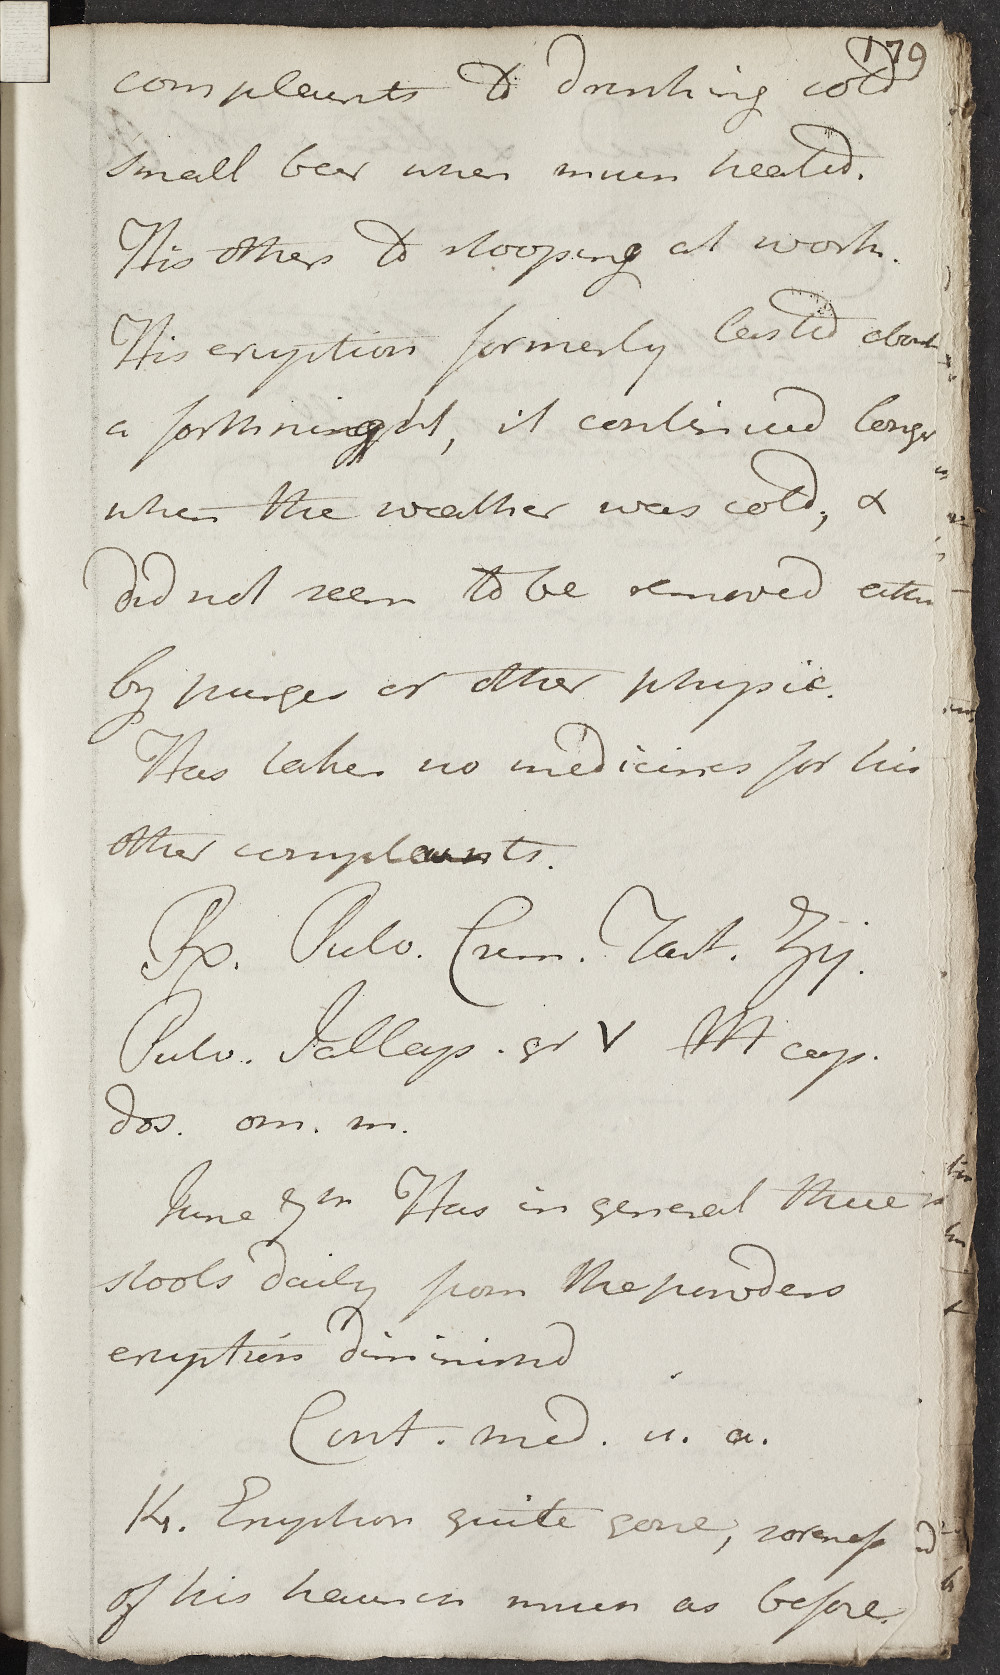 179
complaints to drinking cold
small beer when much heated.
His others to stooping at work.
His eruption formerly lasted about
a forthninght, it continued longer
when the weather was cold, &
did not seem to be removed either
by purges or other physic.
Has taken no medicines for his
other complaints.
Rx. Pulv. Crem. Tart. ʒij.
Pulv. Jallap. gr V M cap.
dos. om. m.
June 7th Has in general three
stools daily from the powders
eruption diminishd
Cont. med. u. a.
14. Eruption quite gone, soreness
of his much as before.